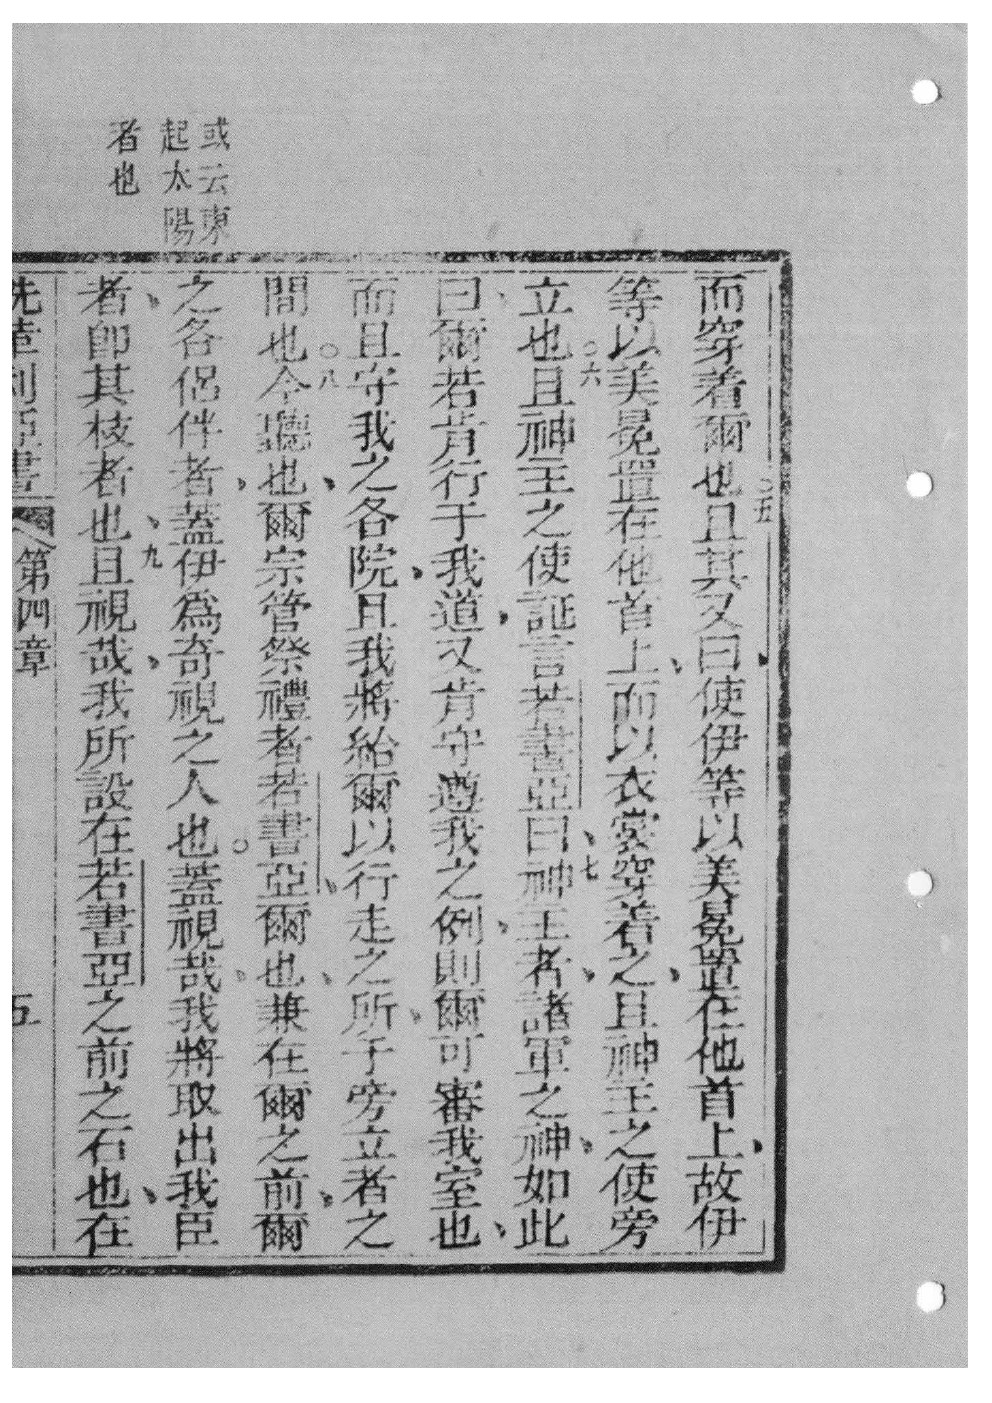 或云東
起太陽
者也
而穿着爾也○五且其又曰、使伊等以美冕置在他首上、故伊
等以美冕置在他首上、而以衣裳穿着之、且神王之使旁
立也○六且神王之使証言若書亞曰、七神王者、諸軍之神、如此
曰、爾若肯行于我道、又肯守遵我之例、則爾可審我室也、
而且守我之各院、且我將給爾以行走之所、于旁立者之
間也○八今聽也、爾宗管祭禮者若書亞、爾也、兼在爾之前、爾
之各侶伴者、蓋伊爲奇視之人也○蓋視哉、我將取出我臣
者、卽其枝者也、九且視哉、我所設在若書亞之前之石也、在
先知撒加利亞書 第四章 五